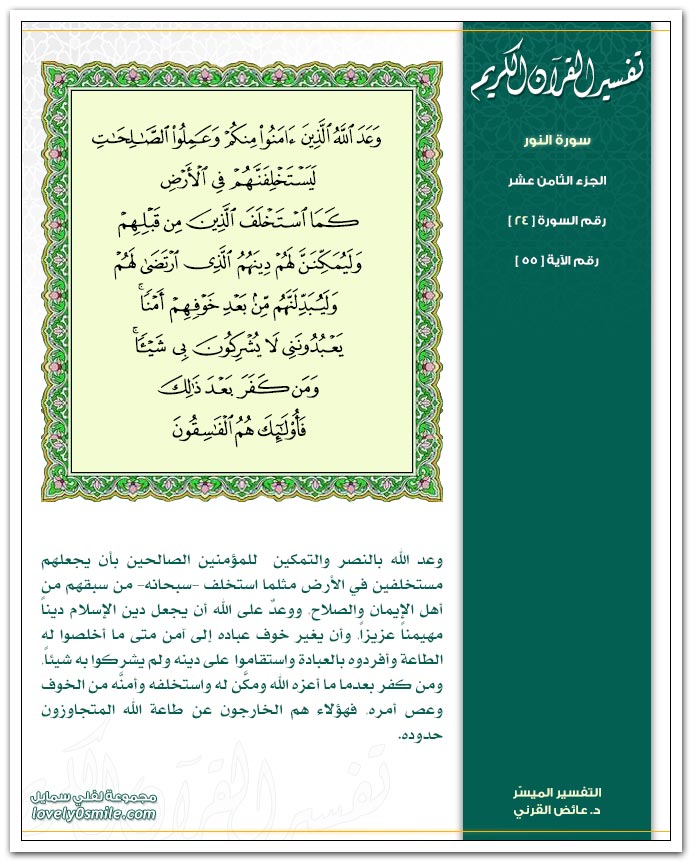 تفسير القرآن الكريم
سورة النور
الجزء الثامن عشر
رقم السورة [ ٢٤ ]
رقم الآية [ ٥٥ ]
وَعَدَ ٱللَّهُ ٱلَّذِينَ ءَامَنُوا۟ مِنكُمْ وَعَمِلُوا۟ ٱلصَّـٰلِحَـٰتِ
لَيَسْتَخْلِفَنَّهُمْ فِى ٱلْأَرْضِ
كَمَا ٱسْتَخْلَفَ ٱلَّذِينَ مِن قَبْلِهِمْ
وَلَيُمَكِّنَنَّ لَهُمْ دِينَهُمُ ٱلَّذِى ٱرْتَضَىٰ لَهُمْ
وَلَيُبَدِّلَنَّهُم مِّنۢ بَعْدِ خَوْفِهِمْ أَمْنًا ۚ
يَعْبُدُونَنِى لَا يُشْرِكُونَ بِى شَيْـًٔا ۚ
وَمَن كَفَرَ بَعْدَ ذَٰلِكَ
فَأُو۟لَـٰٓئِكَ هُمُ ٱلْفَـٰسِقُونَ
وعد الله بالنصر والتمكين للمؤمنين الصالحين بأن يجعلهم
مستخلفين في الأرض مثلما استخلف -سبحانه- من سبقهم من
أهل الإيمان والصلاح. ووعدٌ على الله أن يجعل دين الإسلام ديناً
مهيمناً عزيزاً، وأن يغير خوف عباده إلى أمن متى ما أخلصوا له
الطاعة وأفردوه بالعبادة واستقاموا على دينه ولم يشركوا به شيئاً.
ومن كفر بعدما ما أعزه الله ومكَّن له واستخلفه وأمنَّه من الخوف
وعص أمره. فهؤلاء هم الخارجون عن طاعة الله المتجاوزون
حدوده.
التفسير الميسّر
د. عائض القرني
مجموعة لفلي سمايل
lovely0smile.com
تفسير القرآن الكريم